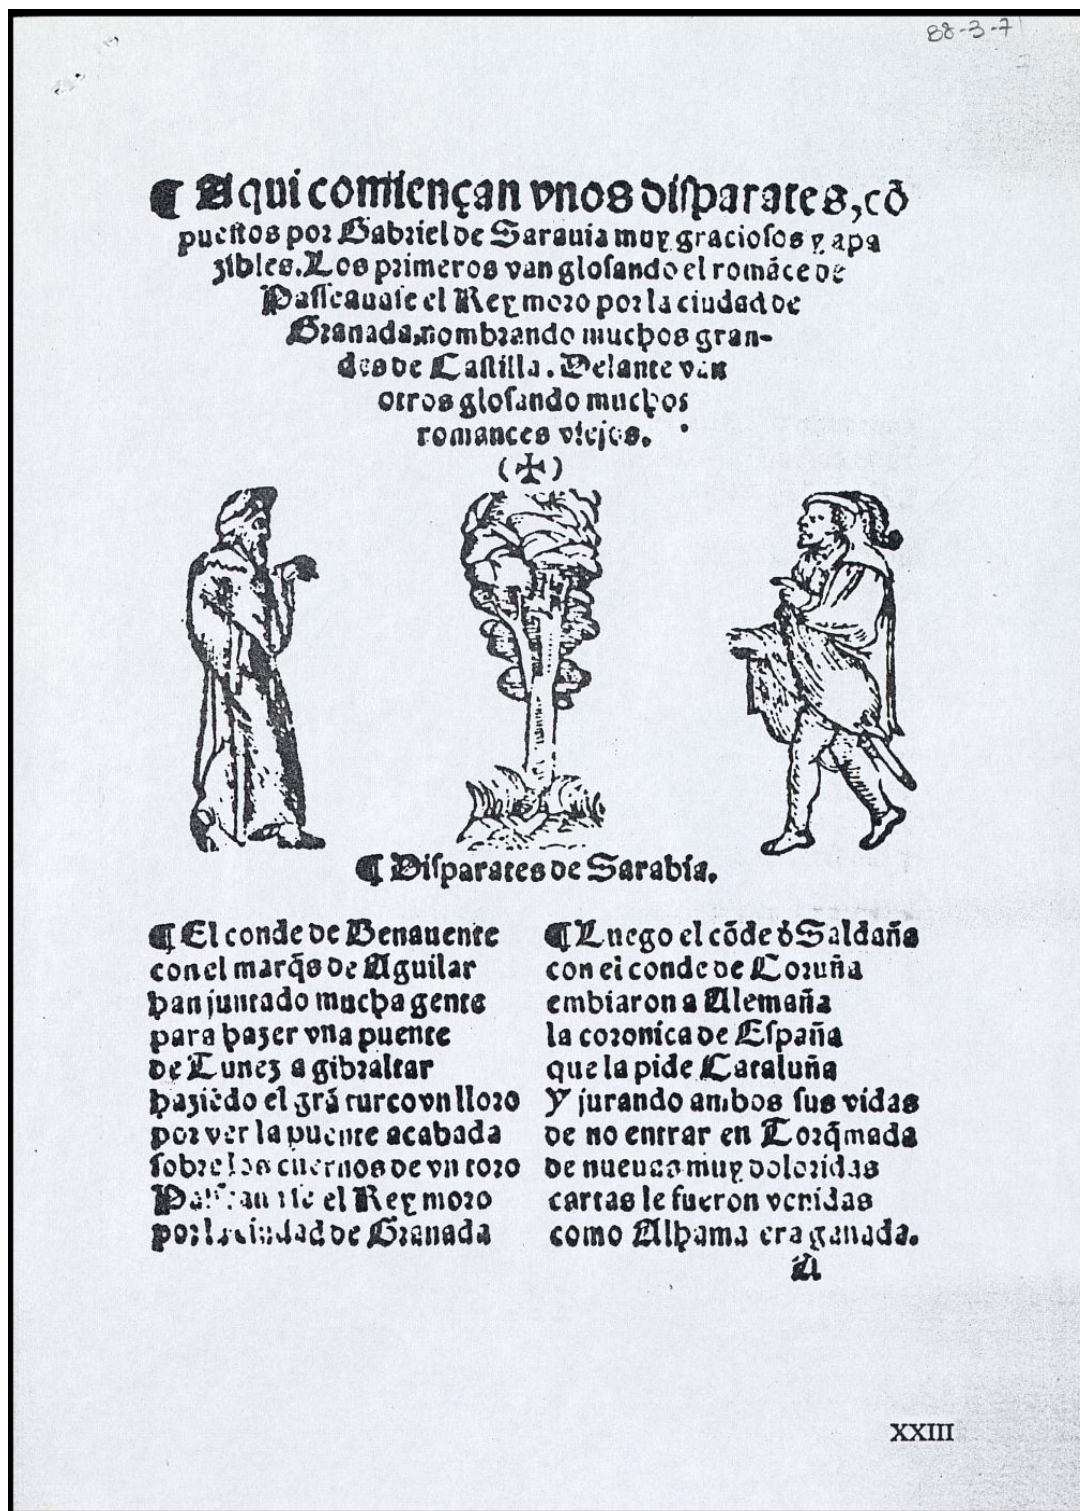 88-3-7
¶ Aqui comiençan vnos disparates, cõ
puestos por Gabriel de Sarauia muy graciosos y apa
zibles. Los primeros van glosando el romãce de
Passeauase el Rey moro por la ciudad de
Granada, nombrando muchos gran-
des de Castilla. Delante van
otros glosando muchos
romances viejos.
(✠)
¶ Disparates de Sarabia.
¶ El conde de Benauente
con el marq̃s de Aguilar
han juntado mucha gente
para hazer vna puente
de Tunez a gibraltar
haziẽdo el grã turco vn lloro
por ver la puente acabada
sobre los cuernos de vn toro
Passeauase el Rey moro
por la ciudad de Granada
¶ Luego el cõde d̃ Saldaña
con el conde de Coruña
embiaron a Alemaña
la coronica de España
que la pide Cataluña
Y jurando ambos sus vidas
de no entrar en Torq̃mada
de nueuas muy doloridas
cartas le fueron venidas
como Alhama era ganada.
A
XXIII